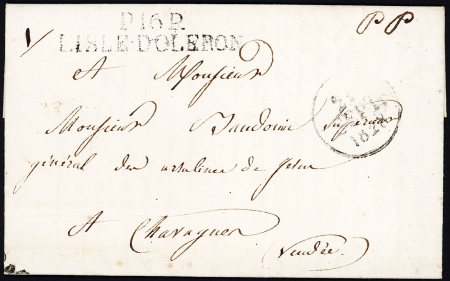 P.16.P.
L'ISLE-D'OLERON
P P
A Monsieur
Monsieur Baudouin Supérieur
général des ursulines de Jésus
A Chavagnes
Vendée
1828